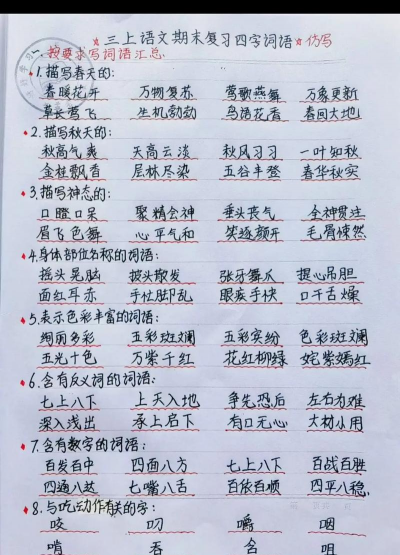 ★三上语文期末复习四字词语★仿写
一、按要求写词语汇总
1.描写春天的:
春暖花开 万物复苏 莺歌燕舞 万象更新
草长莺飞 生机勃勃 鸟语花香 春回大地
2.描写秋天的:
秋高气爽 天高云淡 秋风习习 一叶知秋
金桂飘香 层林尽染 五谷丰登 春华秋实
3.描写神态的:
口瞪口呆 聚精会神 垂头丧气 全神贯注
眉飞色舞 心平气和 笑逐颜开 毛骨悚然
4.身体部位名称的词语:
摇头晃脑 披头散发 张牙舞爪 提心吊胆
面红耳赤 手忙脚乱 眼疾手快 口干舌燥
5.表示色彩丰富的词语:
绚丽多彩 五彩斑斓 五彩缤纷 色彩斑斓
五光十色 万紫千红 花红柳绿 姹紫嫣红
6.含有反义词的词语:
七上八下 上天入地 争先恐后 左右为难
深入浅出 承上启下 有口无心 大材小用
7.含有数字的词语:
百发百中 四面八方 七上八下 百战百胜
四通八达 七嘴八舌 百依百顺 四平八稳
8.与吃动作有关的字:
咬 叨 嚼 咽
啃 吞 含 咀